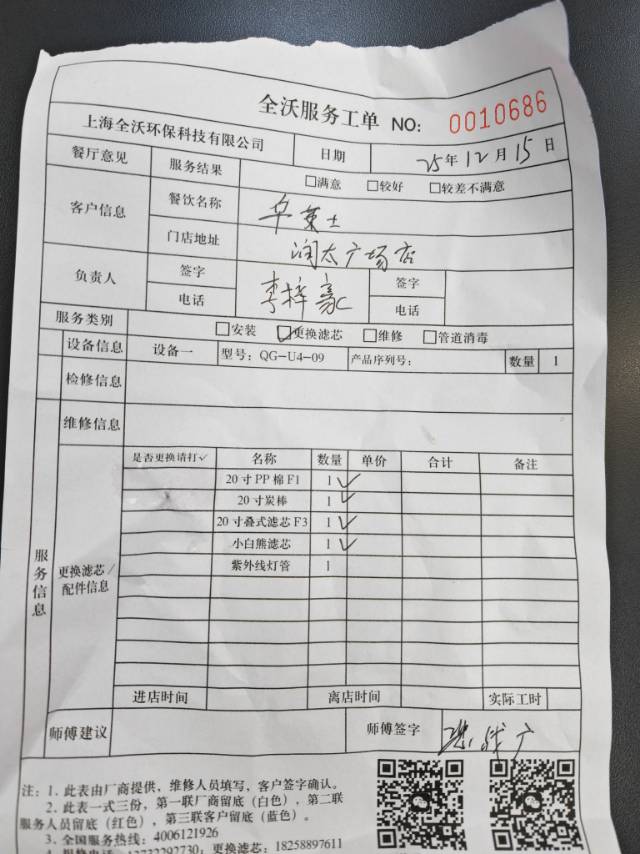 全沃服务工单 NO: 0010686
上海全沃环保科技有限公司 日期 25年12月15日
餐厅意见 服务结果 □满意 □较好 □较差不满意
客户信息 餐饮名称
门店地址 润太广场店
负责人 签字 李梓豪 签字
电话 电话
服务类别 □安装 ☑更换滤芯 □维修 □管道消毒
设备信息 设备一 型号: QG-U4-09 产品序列号: 数量 1
检修信息
维修信息
服务信息
更换滤芯/配件信息
是否更换请打✓ 名称 数量 单价 合计 备注
20寸PP棉F1 1 ✓
20寸炭棒 1 ✓
20寸叠式滤芯F3 1 ✓
小白熊滤芯 1 ✓
紫外线灯管 1
进店时间 离店时间 实际工时
师傅建议 师傅签字
注: 1. 此表由厂商提供, 维修人员填写, 客户签字确认。
2. 此表一式三份, 第一联厂商留底 (白色), 第二联
服务人员留底 (红色), 第三联客户留底 (蓝色)。
3. 全国服务热线: 4006121926
更换滤芯: 18258897611